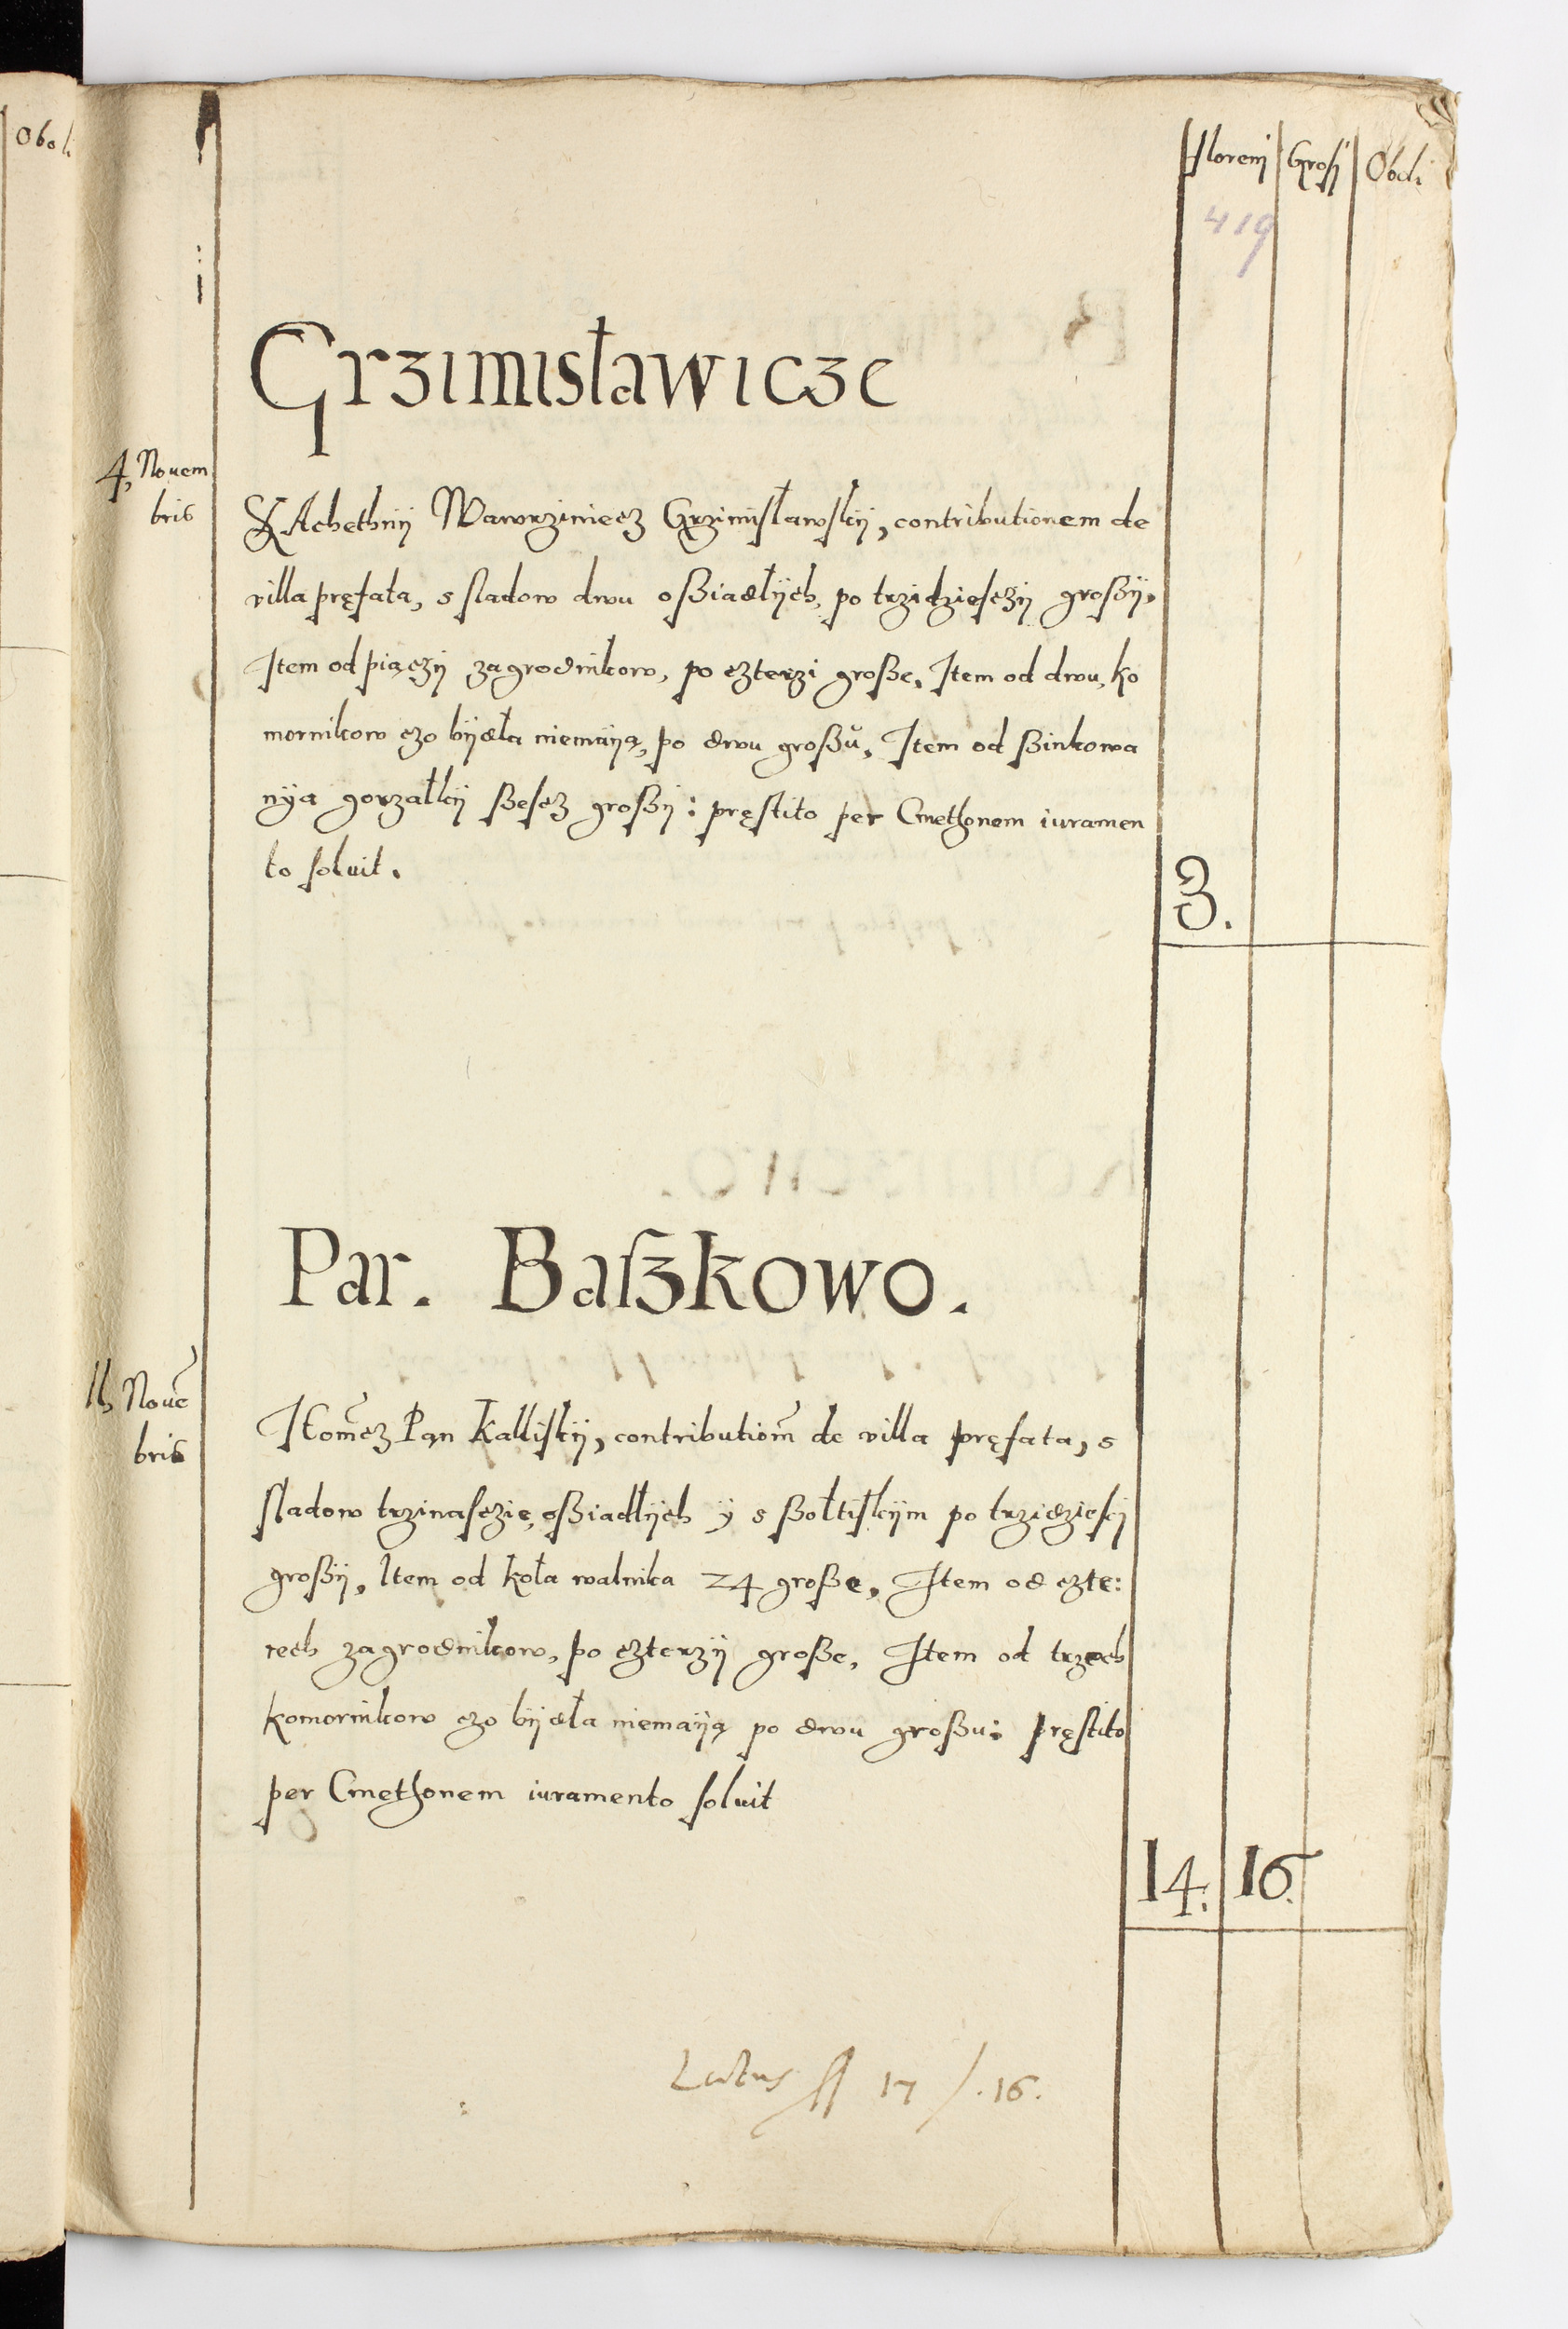 Oboli
Floreni Grosi Oboli
419
Grzimisławicze
4, Nouem
bris
SLAchethnÿ Wawrziniecz Grzimisławskÿ, contributionem de
villa pręfata, s sladow dwu oßiadłÿch, po trzidziesczÿ großÿ,
Item od piączÿ zagrodnikow, po czterzi große, Item od dwu, ko
mornikow czo bÿdła niemaÿą, po dwu großŭ, Item od ßinkowa
nÿa gorzałkÿ ßescz großÿ: pręstito per Cmethonem iuramen
to soluit.
3.
Par. Baszkowo.
11, Nouē
bris
Pan Kalliskÿ, contributiom̄ de villa pręfata, s
sladow trzinasczie, oßiadłÿch ÿ s ßołtiskÿm po trzidzieskÿ
großÿ, Item od koła walnika 24 große, Item od czte:
rech zagrodnikow, po czterzÿ große, Item od trzech
komornikow czo bÿdła niemaÿą po dwu großu: pręstito
per Cmethonem iuramento soluit
14. 16.
Latus ff 17 /. 16.